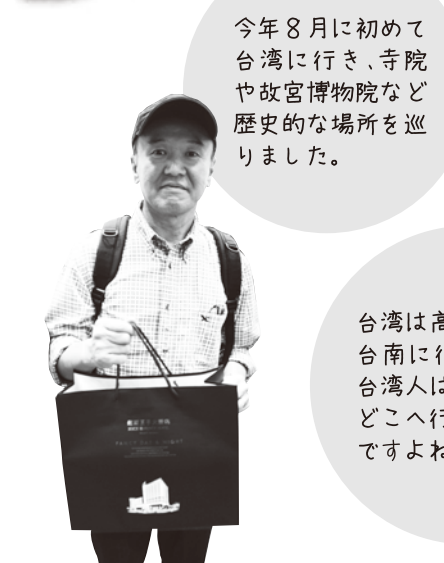 今年8月に初めて
台湾に行き、寺院
や故宮博物院など
歴史的な場所を巡
りました。
台湾は高
台南に行
台湾人は
どこへ行
ですよね